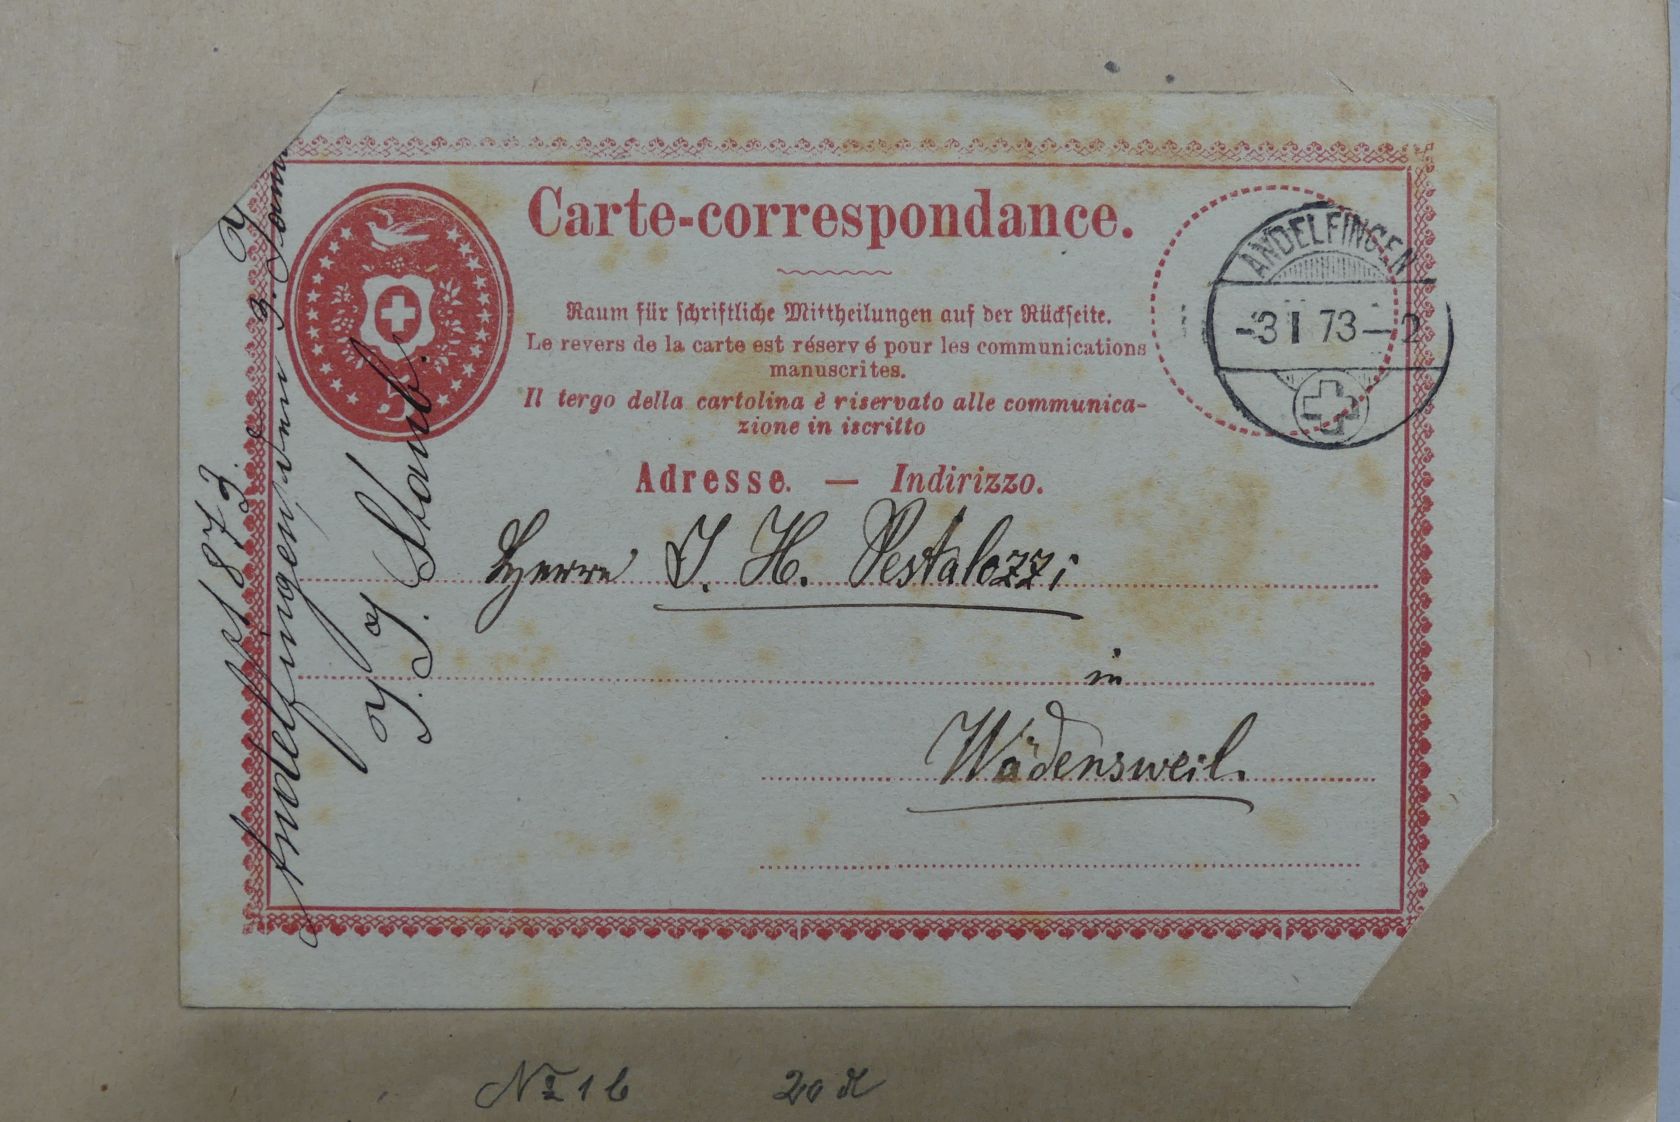 Carte-correspondance.
Raum für schriftliche Mittheilungen auf der Rückseite.
Le revers de la carte est réservé pour les communications
manuscrites.
Il tergo della cartolina è riservato alle communica-
zione in iscritto
Adresse. — Indirizzo.
ANDELFINGEN
-3 I 73-2
5
Herrn J. H. Pestalozzi
in
Wädensweil.
Andelfingen, den 3. Jann.
1873.
J. Staub.
No 1b